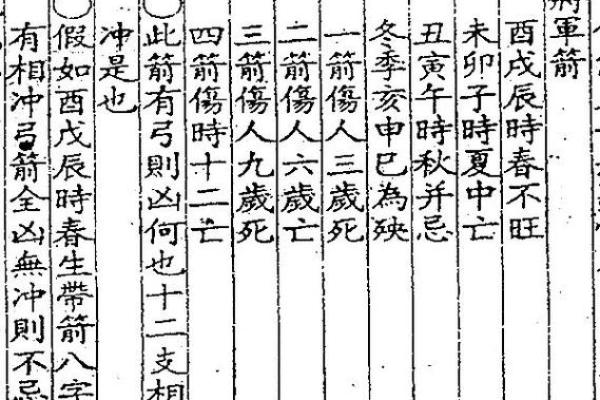 軍箭
酉戌辰時春不旺
未卯子時夏中亡
丑寅午時秋并忌
冬季亥申巳為殃
一箭傷人三歲死
二箭傷人六歲亡
三箭傷人九歲死
四箭傷時十二亡
此箭有弓則凶何也十二支相
冲是也
假如酉戌辰時春生帶箭八字
有相冲弓箭全凶無冲則不忌